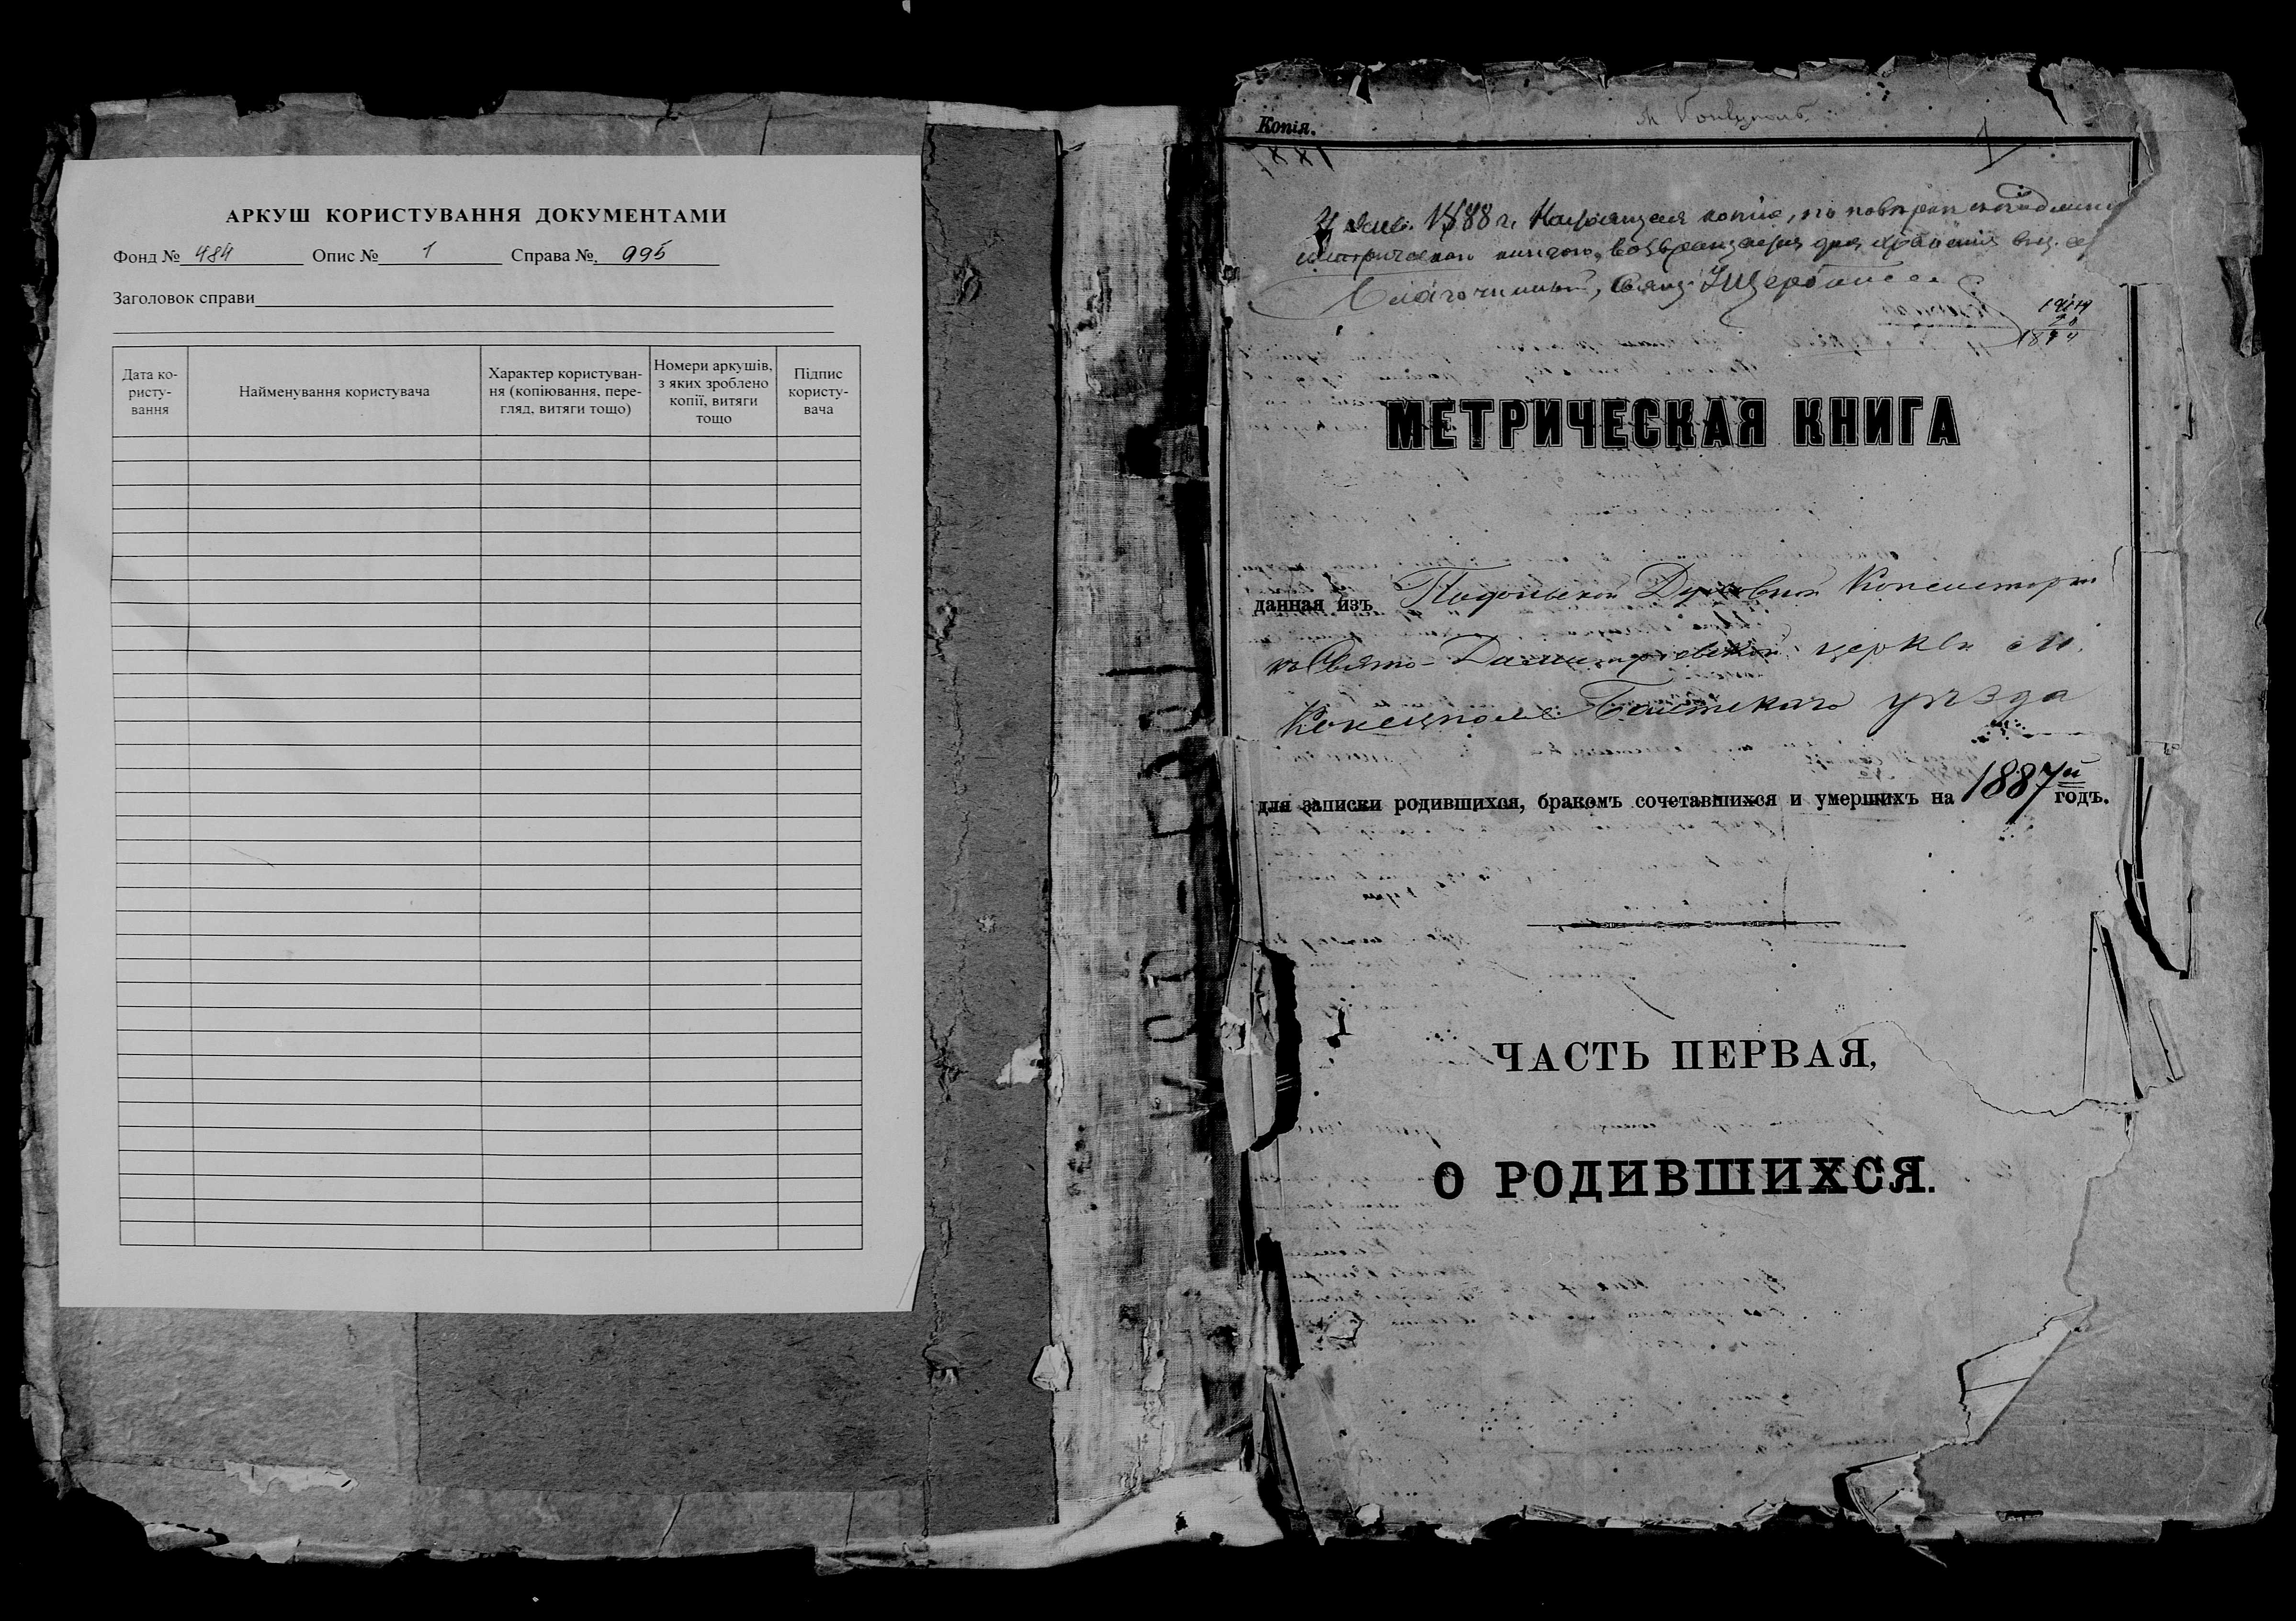 АРКУШ КОРИСТУВАННЯ ДОКУМЕНТАМИ
Фонд № 484 Опис № 1 Справа № 995
Заголовок справи
Дата ко-
ристу-
вання
Найменування користувача
Характер користуван-
ня (копіювання, пере-
гляд, витяги тощо)
Номери аркушів,
з яких зроблено
копії, витяги
тощо
Підпис
користу-
вача
Копія.
1
1888 г. копія, по
книгою, возвращается для храненія
Благочинный, Свящ.
МЕТРИЧЕСКАЯ КНИГА
данная изъ Подольской Духовной Консисторіи
въ Свято-Димитріевской церкви м.
Конецполе Балтскаго уѣзда
для записки родившихся, бракомъ сочетавшихся и умершихъ на 1887й годъ.
ЧАСТЬ ПЕРВАЯ,
О РОДИВШИХСЯ.